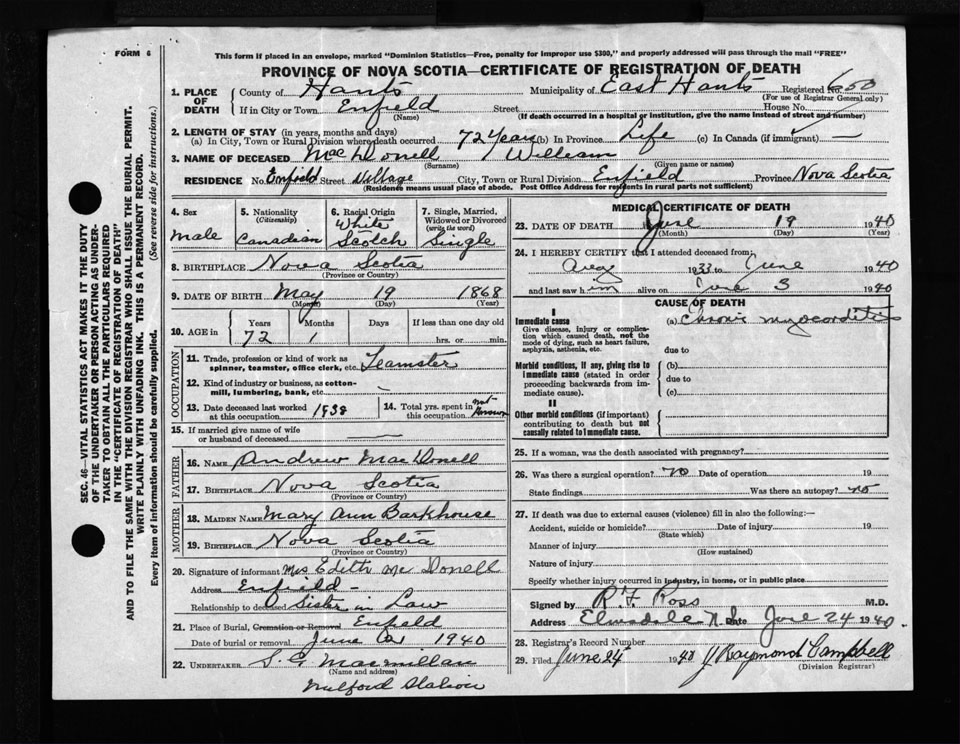 FORM 6
This form if placed in an envelope, marked "Dominion Statistics—Free, penalty for improper use $300," and properly addressed will pass through the mail "FREE"
PROVINCE OF NOVA SCOTIA—CERTIFICATE OF REGISTRATION OF DEATH
SEC. 46—VITAL STATISTICS ACT MAKES IT THE DUTY
OF THE UNDERTAKER OR PERSON ACTING AS UNDER-
TAKER TO OBTAIN ALL THE PARTICULARS REQUIRED
IN THE "CERTIFICATE OF REGISTRATION OF DEATH"
AND TO FILE THE SAME WITH THE DIVISION REGISTRAR WHO SHALL ISSUE THE BURIAL PERMIT.
WRITE PLAINLY WITH UNFADING INK. THIS IS A PERMANENT RECORD.
Every item of information should be carefully supplied. (See reverse side for instructions.)
1. PLACE OF DEATH
County of Hants Municipality of East Hants Registered No. 650
(For use of Registrar General only)
If in City or Town Enfield Street House No.
(Name) (If death occurred in a hospital or institution, give the name instead of street and number)
2. LENGTH OF STAY (in years, months and days)
(a) In City, Town or Rural Division where death occurred 72 Years (b) In Province Life (c) In Canada (if immigrant) —
3. NAME OF DECEASED MacDonell William
(Surname) (Given name or names)
RESIDENCE No. Enfield Street Village City, Town or Rural Division Enfield Province Nova Scotia
(Residence means usual place of abode. Post Office Address for residents in rural parts not sufficient)
4. Sex
Male
5. Nationality
(Citizenship)
Canadian
6. Racial Origin
White
Scotch
7. Single, Married,
Widowed or Divorced
(write the word)
Single
8. BIRTHPLACE Nova Scotia
(Province or Country)
9. DATE OF BIRTH May 19 1868
(Month) (Day) (Year)
10. AGE in Years Months Days If less than one day old
72 1 hrs. or min.
OCCUPATION
11. Trade, profession or kind of work as
spinner, teamster, office clerk, etc. Teamster
12. Kind of industry or business, as cotton-
mill, lumbering, bank, etc. —
13. Date deceased last worked
at this occupation 1938
14. Total yrs. spent in
this occupation not known
15. If married give name of wife
or husband of deceased —
FATHER
16. NAME Andrew MacDonell
17. BIRTHPLACE Nova Scotia
(Province or Country)
MOTHER
18. MAIDEN NAME Mary Ann Barkhouse
19. BIRTHPLACE Nova Scotia
(Province or Country)
20. Signature of informant Mrs Edith McDonell
Address Enfield
Relationship to deceased Sister in Law
21. Place of Burial, Cremation or Removal Enfield
Date of burial or removal June 1940
22. UNDERTAKER S. G. Macmillan
(Name and address)
Milford Station
MEDICAL CERTIFICATE OF DEATH
23. DATE OF DEATH June 19 1940
(Month) (Day) (Year)
24. I HEREBY CERTIFY that I attended deceased from:
Aug 1933 to June 1940
and last saw him alive on June 3 1940
CAUSE OF DEATH
I
Immediate cause
Give disease, injury or complica-
tion which caused death, not the
mode of dying, such as heart failure,
asphyxia, asthenia, etc.
(a) Chronic myocarditis
due to
Morbid conditions, if any, giving rise to
immediate cause (stated in order
proceeding backwards from im-
mediate cause).
(b)
due to
(c)
II
Other morbid conditions (if important)
contributing to death but not
causally related to immediate cause.
25. If a woman, was the death associated with pregnancy?
26. Was there a surgical operation? no Date of operation 19
State findings Was there an autopsy? no
27. If death was due to external causes (violence) fill in also the following:—
Accident, suicide or homicide? Date of injury 19
(State which)
Manner of injury
(How sustained)
Nature of injury
Specify whether injury occurred in industry, in home, or in public place
Signed by R. F. Ross M.D.
Address Elmsdale N.S. Date June 24 1940.
28. Registrar's Record Number
29. Filed June 24th 1940 J Raymond Campbell
(Division Registrar)